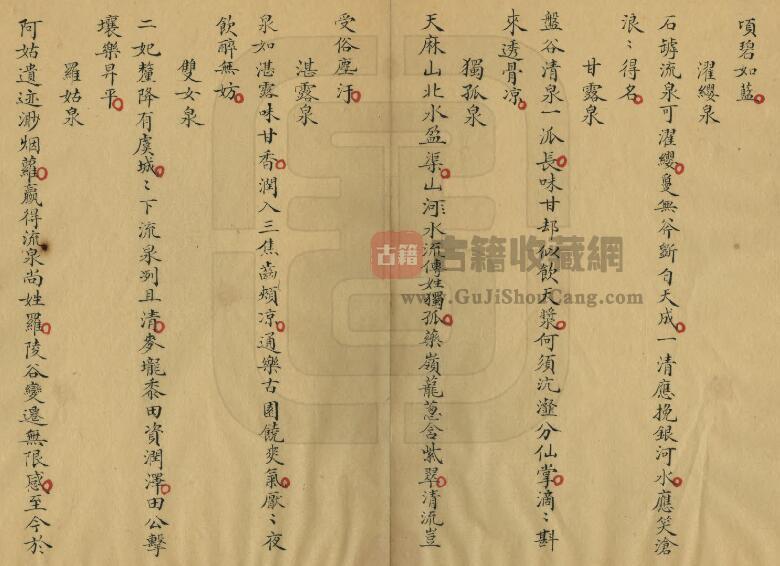 頃碧如藍
濯纓泉
石罅流泉可濯纓戞無斧斷自天成一清應挽銀河水應笑滄
浪〻得名
甘露泉
盤谷清泉一派長味甘却似飲天漿何須沆瀣分仙掌滴〻斟
來透骨凉
獨孤泉
天麻山北水盈渠山河水流傳姓獨孤藥嶺龍蔥含紫翠清流豈
受俗塵汙
湛露泉
泉如湛露味甘香潤入三焦齒頰凉通樂古園饒爽氣厭〻夜
飲醉無妨
雙女泉
二妃釐降有虞城〻下流泉冽且清麥壠黍田資潤澤田公擊
壤樂昇平
羅姑泉
阿姑遺迹渺烟蘿嬴得流泉尚姓羅陵谷變遷無限感至今於
古籍
古籍收藏網
www.GuJiShouCang.com